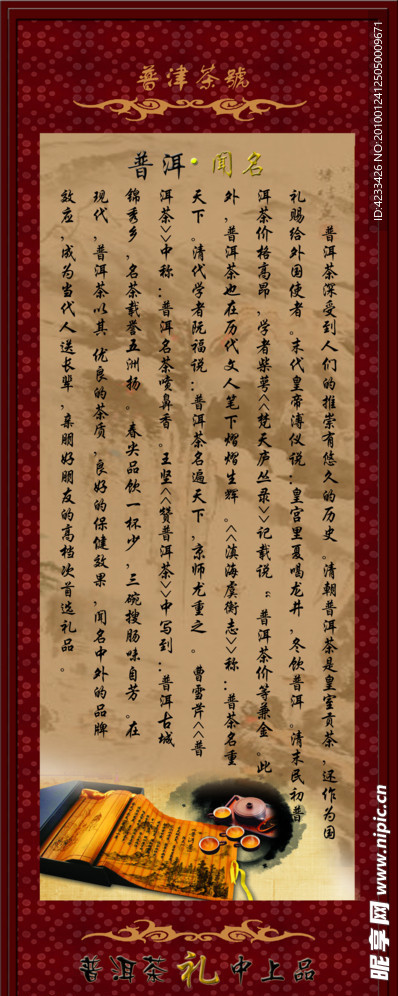 普津茶號
普洱·闻名
普洱茶深受到人们的推崇有悠久的历史。清朝普洱茶是皇室贡茶,还作为国
礼赐给外国使者。末代皇帝溥仪说:皇宫里夏喝龙井,冬饮普洱。清末民初普
洱茶价格高昂,学者柴萼<<梵天庐丛录>>记载说:普洱茶价等兼金。此
外,普洱茶也在历代文人笔下熠熠生辉。<<滇海虞衡志>>称:普茶名重
天下。清代学者阮福说:普洱茶名遍天下,京师尤重之。曹雪芹<<普
洱茶>>中称:普洱名茶喷鼻香。王坚<<赞普洱茶>>中写到:普洱古城
锦秀乡,名茶载誉五洲扬。春尖品饮一杯少,三碗搜肠味自芳。在
现代,普洱茶以其优良的茶质,良好的保健效果,闻名中外的品牌
效应,成为当代人送长辈,亲朋好朋友的高档次首选礼品。
普洱茶礼中上品
ID:4233426 NO:20100124125050009671
昵享网 www.nipic.cn